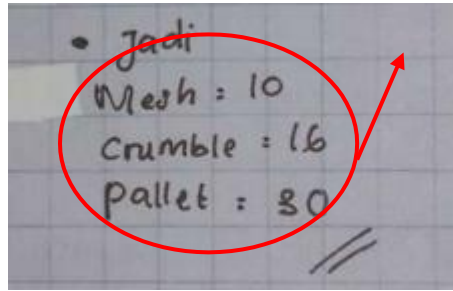 • Jadi
Mesh : 10
Crumble : 16
Pallet : 80